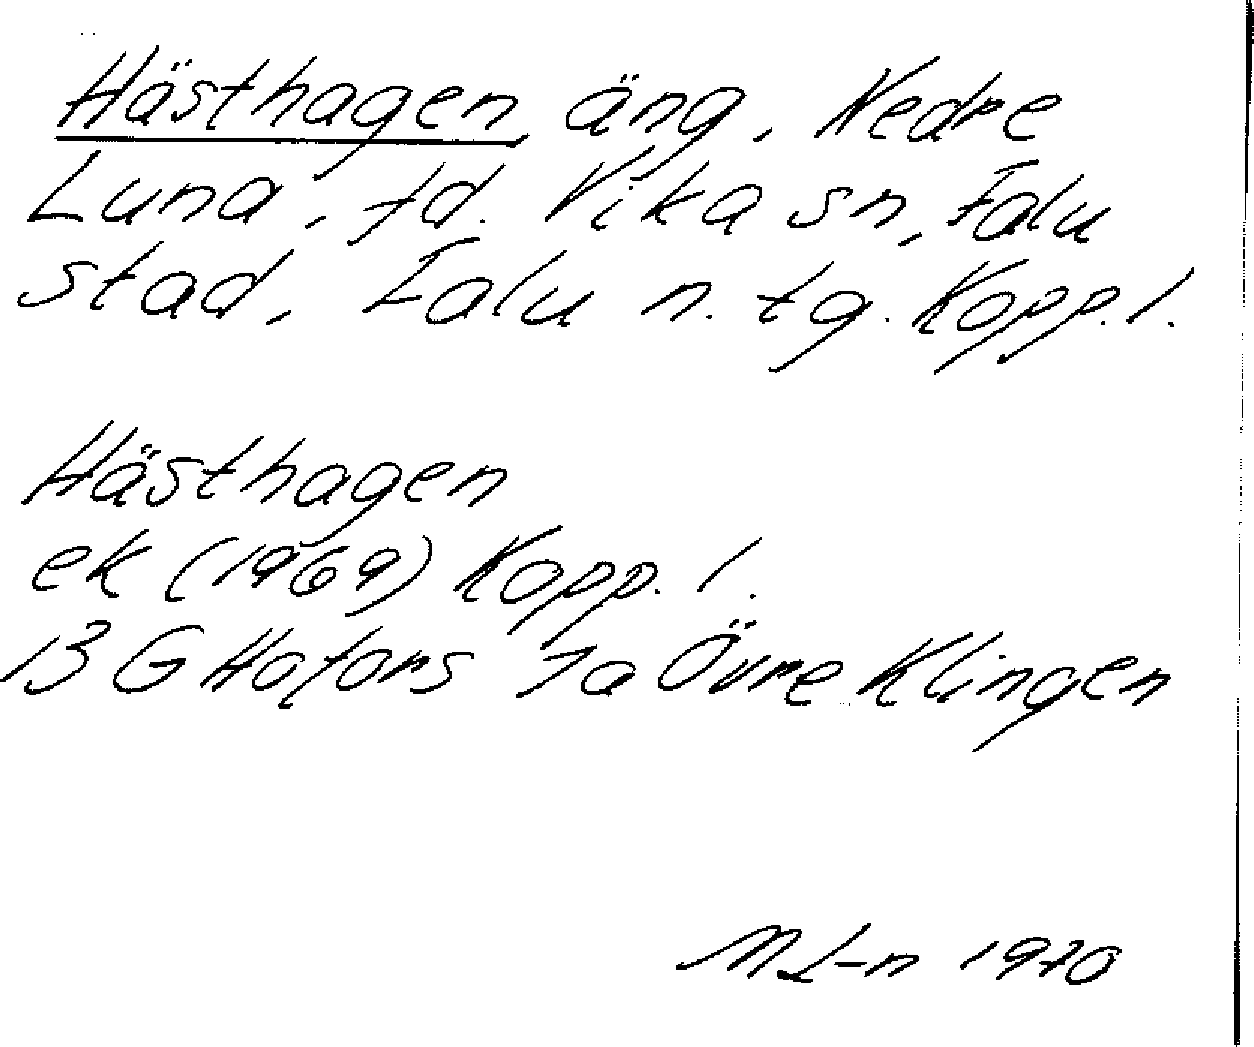 Hästhagen, äng, Nedre
Luna, fd. Vika sn, Falu
stad, Falu n. tg. Kopp. l.
Hästhagen
ek (1969) Kopp. l.
13 G Hofors 7a Övre Klingen
M L-n 1970